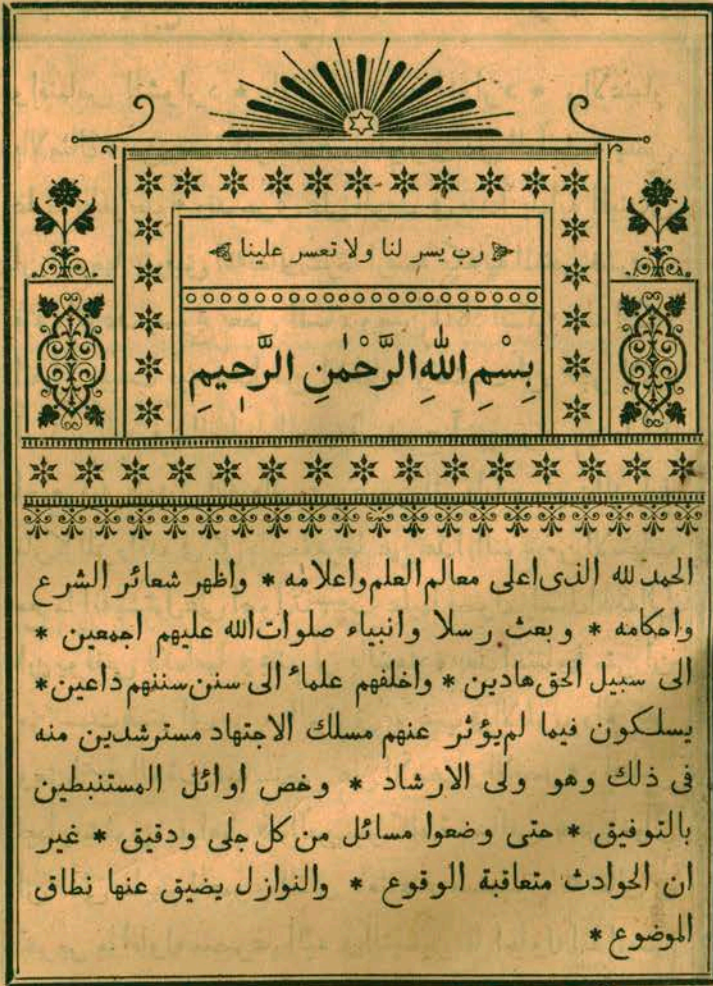 رب يسر لنا ولا تعسر علينا
بِسْمِ اللّٰهِ الرَّحْمٰنِ الرَّحِيمِ
الحمد لله الذى اعلى معالم العلم واعلامه * واظهر شعائر الشرع
واحكامه * وبعث رسلا وانبياء صلوات الله عليهم اجمعين *
الى سبيل الحق هادين * واخلفهم علماء الى سنن سننهم داعين *
يسلكون فيما لم يؤثر عنهم مسلك الاجتهاد مسترشدين منه
فى ذلك وهو ولى الارشاد * وخص اوائل المستنبطين
بالتوفيق * حتى وضعوا مسائل من كل جلى ودقيق * غير
ان الحوادث متعاقبة الوقوع * والنوازل يضيق عنها نطاق
الموضوع *